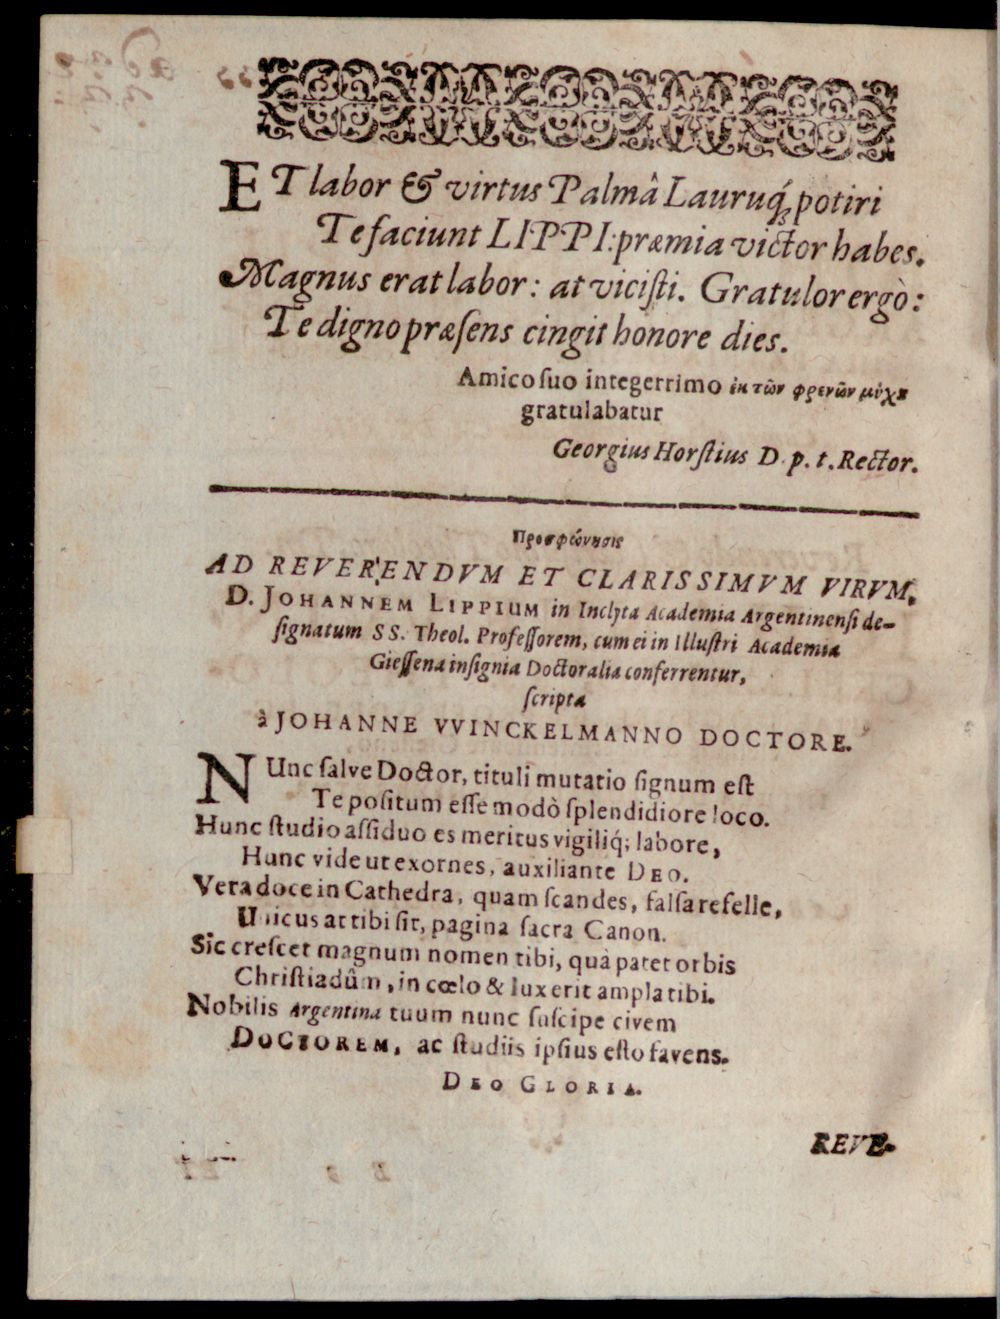 ET labor & virtus Palmâ Lauruq́; potiri
Te faciunt LIPPI: præmia victor habes.
Magnus erat labor: at viciſti. Gratulor ergò:
Te digno præſens cingit honore dies.
Amico ſuo integerrimo ἐκ τῶν φρενῶν μύχȣ
gratulabatur
Georgius Horſtius D. p. t. Rector.
Προσφώνησις
AD REVERENDVM ET CLARISSIMVM VIRVM,
D. JOHANNEM LIPPIUM in Inclyta Academia Argentinenſi de-
ſignatum SS. Theol. Profeſſorem, cum ei in Illuſtri Academia
Gieſſena inſignia Doctoralia conferrentur,
ſcripta
à JOHANNE VVINCKELMANNO DOCTORE.
NUnc ſalve Doctor, tituli mutatio ſignum eſt
Te poſitum eſſe modò ſplendidiore loco.
Hunc ſtudio aſſiduo es meritus vigiliq́; labore,
Hunc vide ut exornes, auxiliante DEO.
Vera doce in Cathedra, quam ſcandes, falſa refelle,
Unicus at tibi ſit, pagina ſacra Canon.
Sic creſcet magnum nomen tibi, quà patet orbis
Chriſtiadûm, in cœlo & lux erit ampla tibi.
Nobilis Argentina tuum nunc ſuſcipe civem
DOCTOREM, ac ſtudiis ipſius eſto favens.
DEO GLORIA.
REVE-